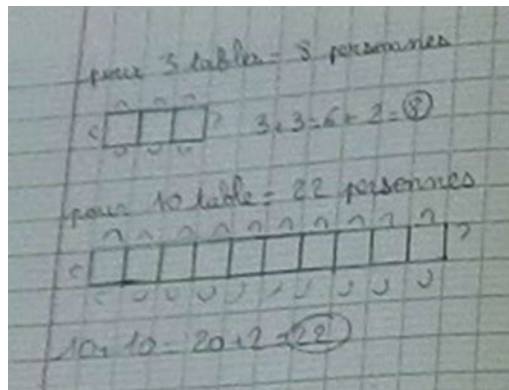 pour 3 tables = 8 personnes
3+3=6+2=8
pour 10 table = 22 personnes
10+10=20+2=22